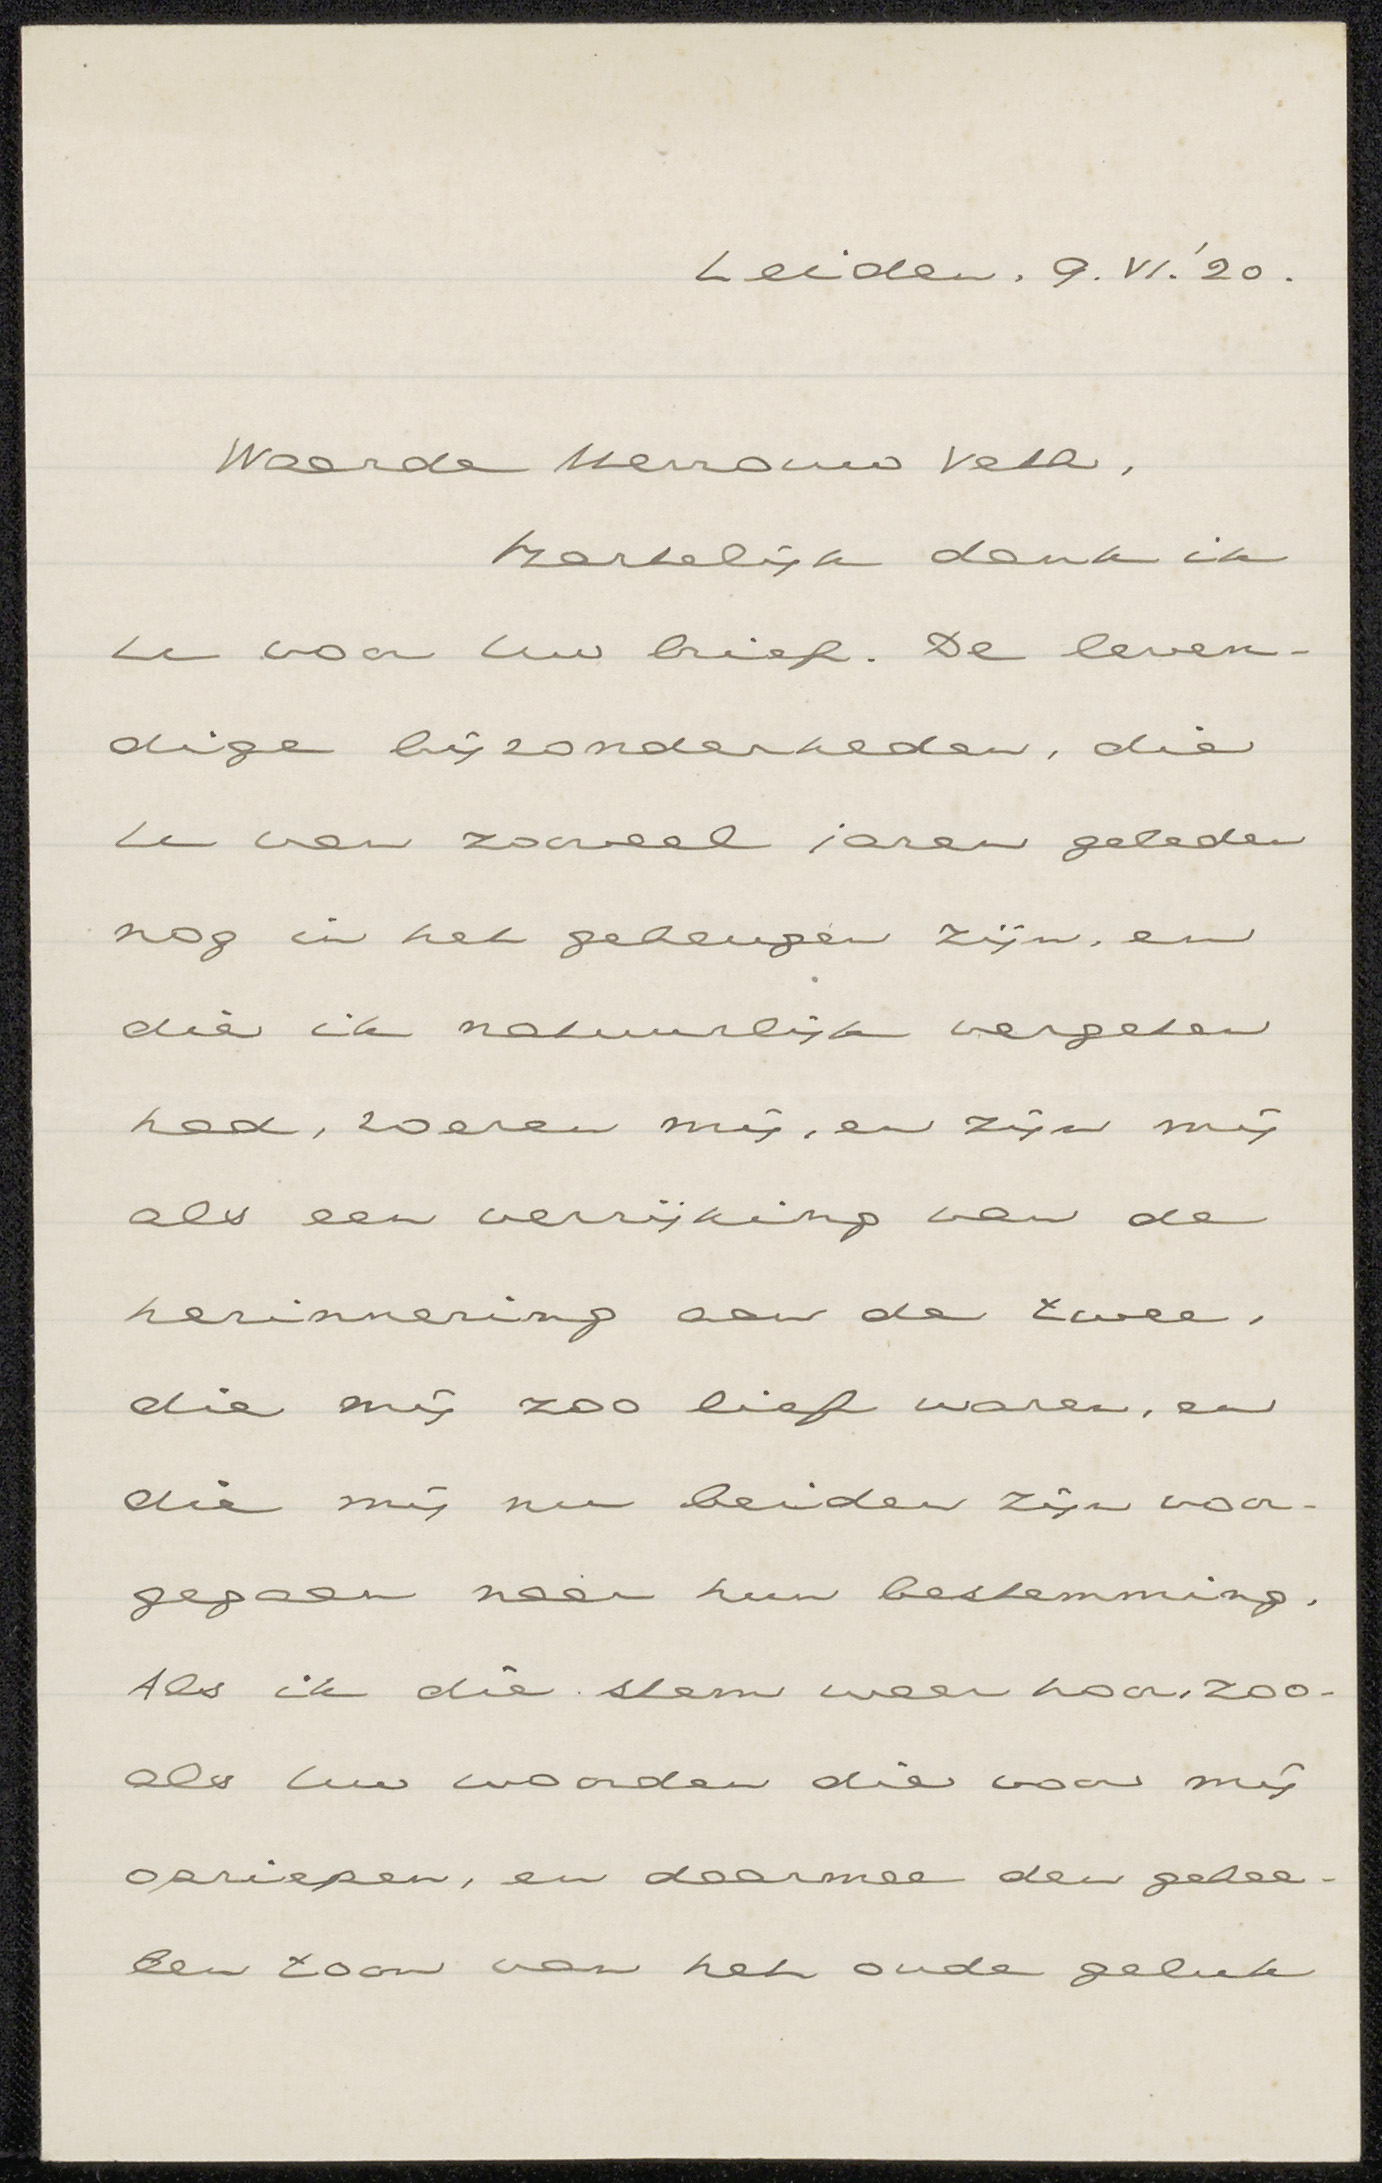 Leiden, 9.VI.'20.
Waarde Mevrouw Veth,
Hartelijk dank ik
U voor Uw brief. De leven-
dige bijzonderheden, die
U van zooveel jaren geleden
nog in het geheugen zijn, en
die ik natuurlijk vergeten
had, roeren mij, en zijn mij
als een verrijking van de
herinnering aan de twee,
die mij zoo lief waren, en
die mij nu beiden zijn voor-
gegaan naar hun bestemming.
Als ik die stem weer hoor, zoo-
als Uw woorden die voor mij
opriepen, en daarmee den gehee-
len toon van het oude geluk